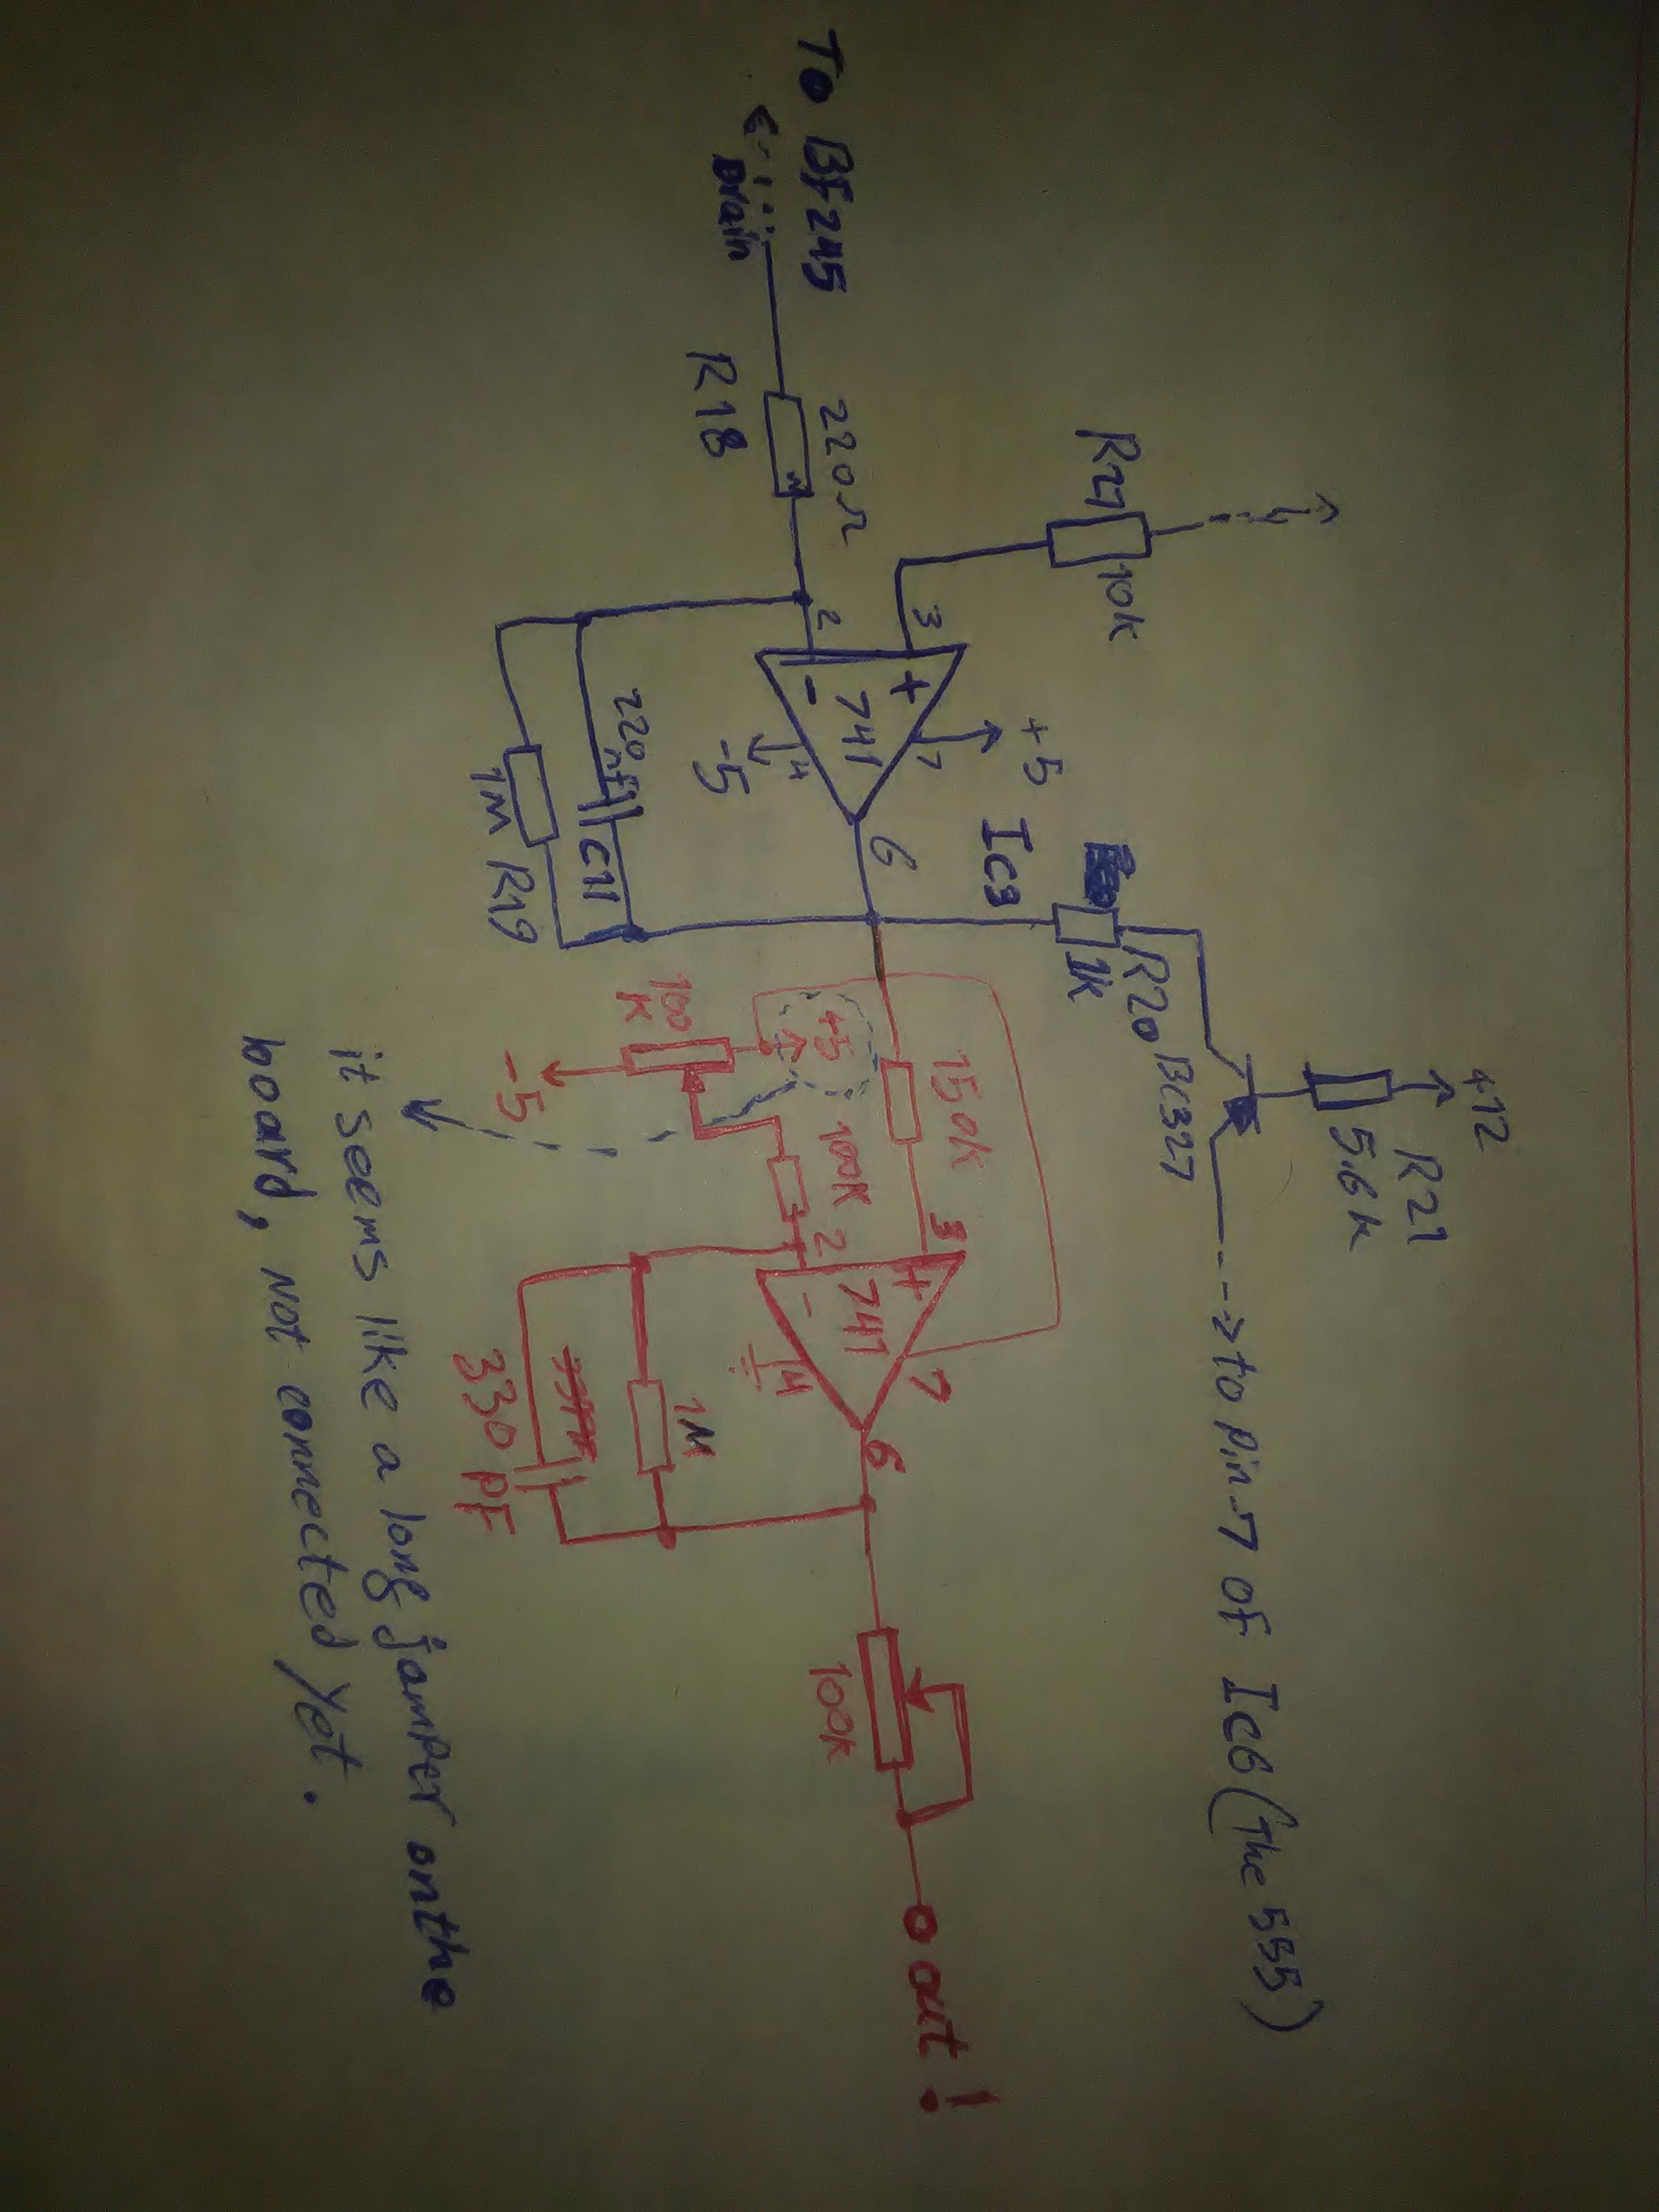 +12
R21
5.6k
BC327
--→ to pin-7 of IC6 (the 555)
R20
1k
R21
10k
To BF245
Drain
220Ω
R18
3
2
+
-
741
+5
7
4
-5
6
IC3
220nF
C11
1M R19
150k
+5
100
K
-5
100K
3
2
+
-
741
7
4
6
1M
330 PF
100k
out !
it seems like a long jamper on the
board, not connected yet.